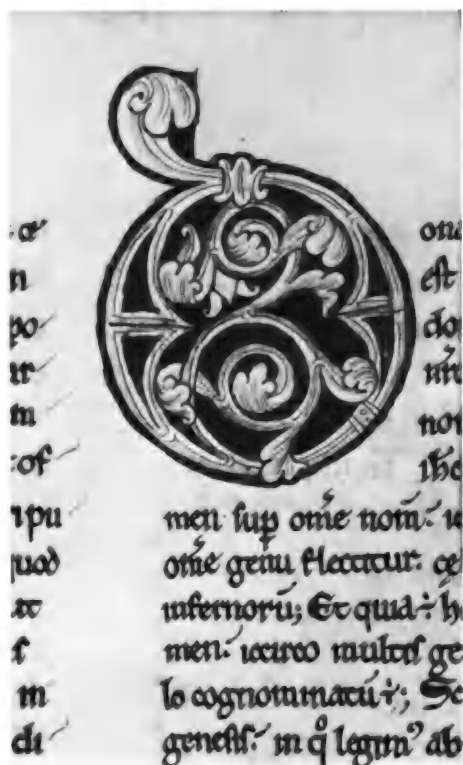 n
po
m
ripu
quod
m
di
D
ona
est
do
nor
ihc
men sup om̄e nom̄:
om̄e genu flectitur. ce
infernorū; Et quia ÷ h
men: iccirco multis ge
lo cognominatū ÷; Se
genesis: in q° legim' ab